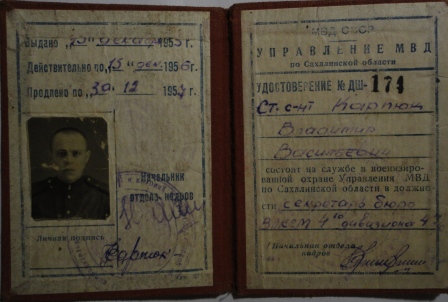 Выдано „15" дек 1955 г.
Действительно по „15" дек. 1956 г.
Продлено по „30" 12 1957 г.
Начальник
отдела кадров
Личная подпись
Карпюк
МВД СССР
УПРАВЛЕНИЕ МВД
по Сахалинской области
УДОСТОВЕРЕНИЕ № ДШ- 174
Ст. с-нт Карпюк
Владимир
Васильевич
состоит на службе в военизиро-
ванной охране Управления МВД
по Сахалинской области в должно-
сти секретаря бюро
4го дивизиона
Начальник отдела
кадров